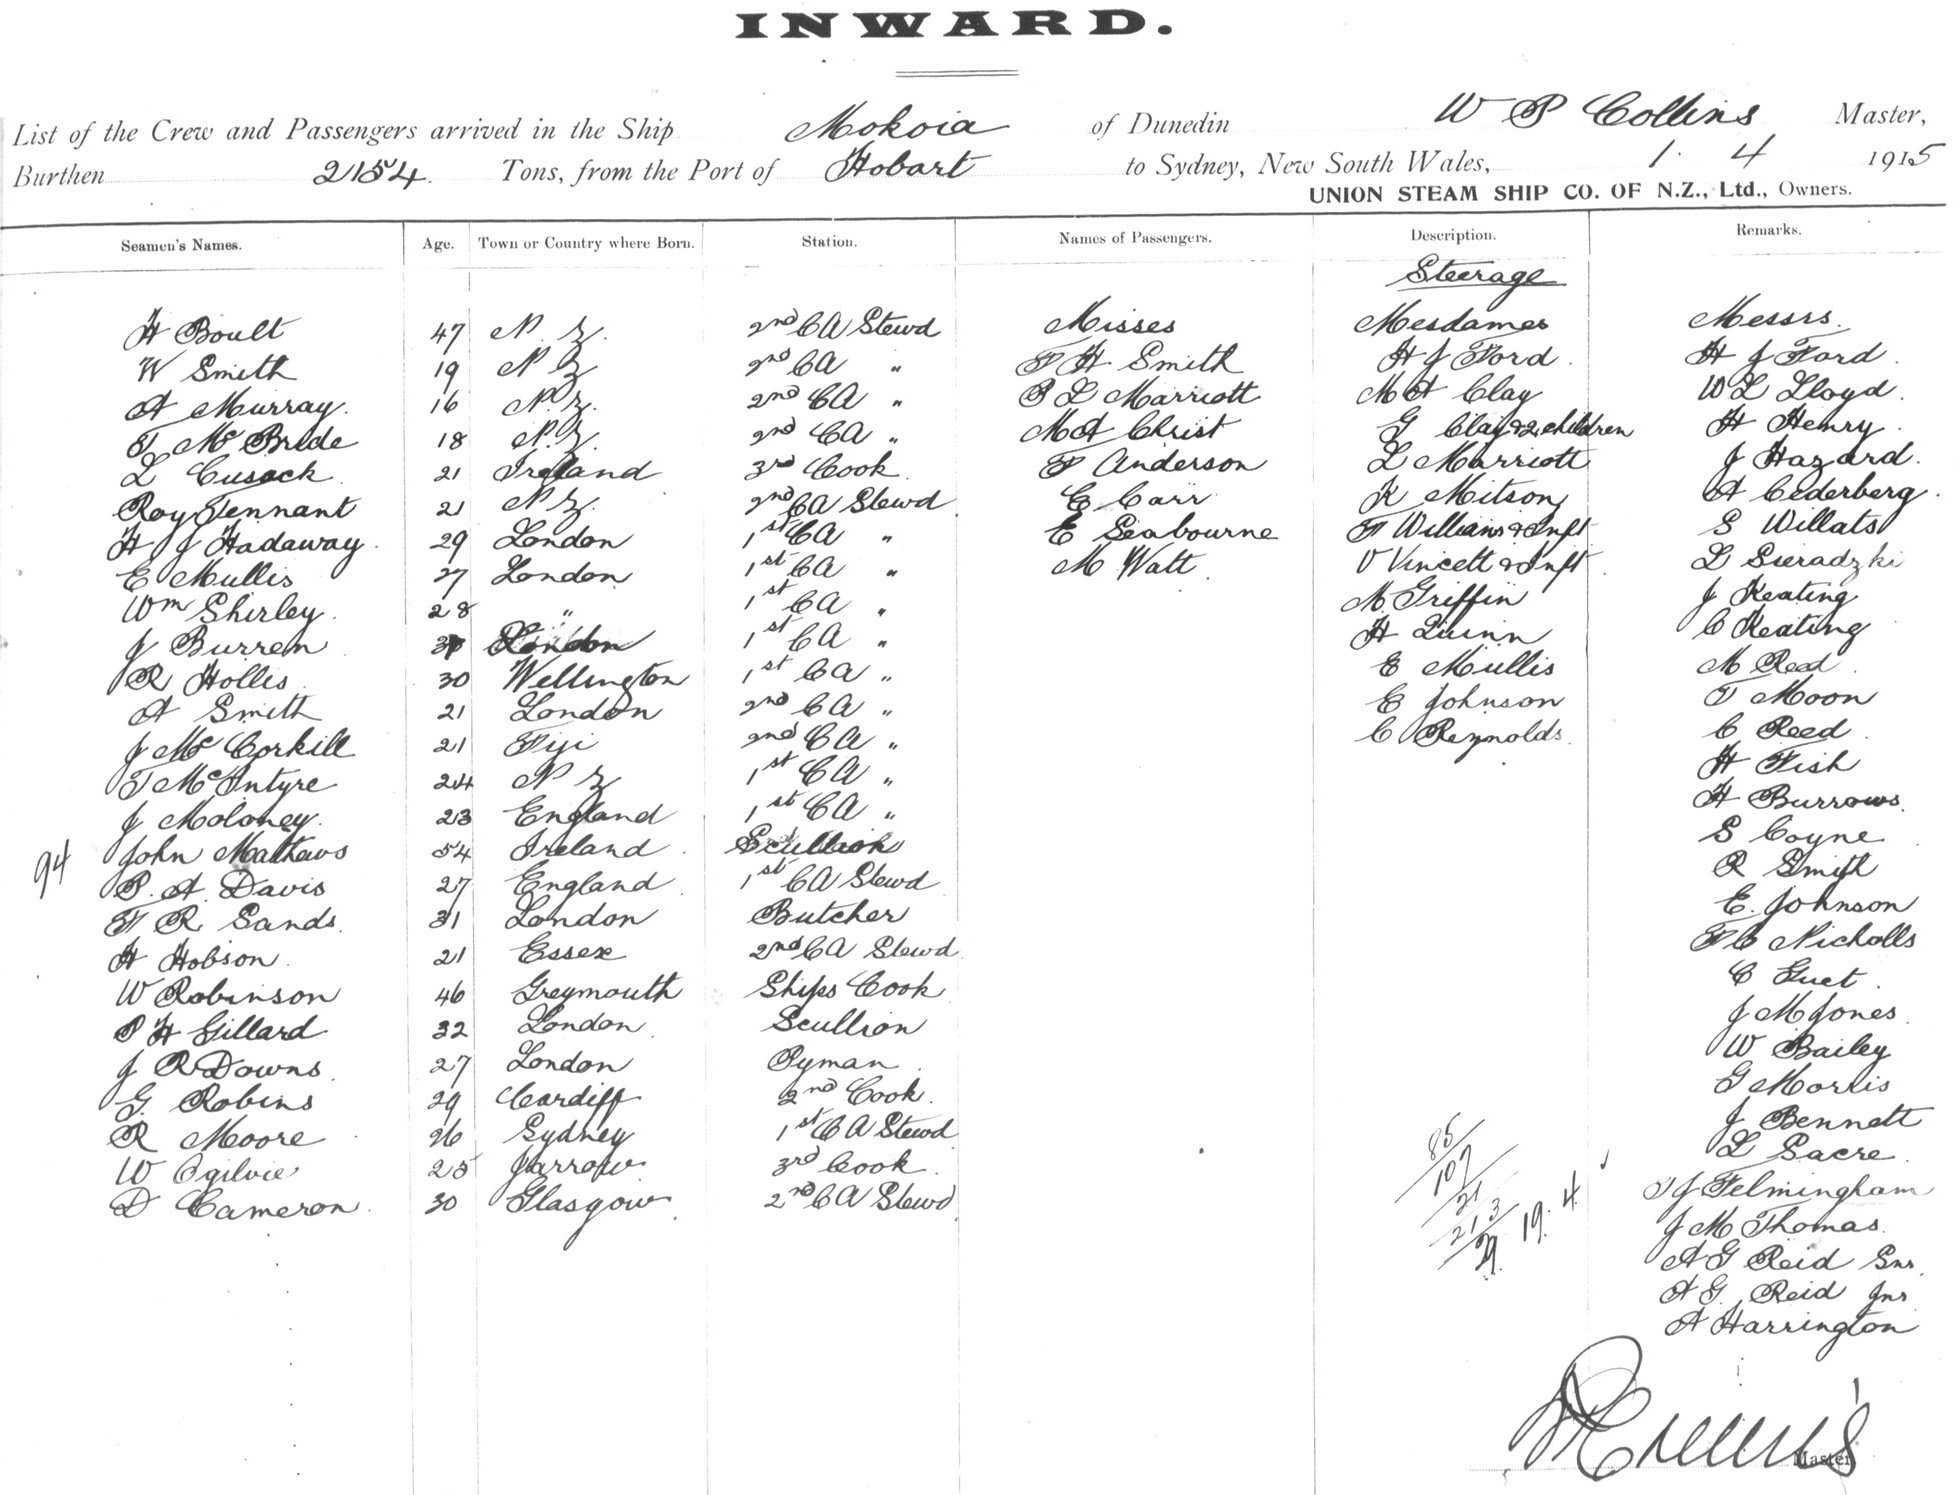 INWARD.
List of the Crew and Passengers arrived in the Ship Mokoia of Dunedin W P Collins Master,
Burthen 2154 Tons, from the Port of Hobart to Sydney, New South Wales, 1. 4 1915
UNION STEAM SHIP CO. OF N.Z., Ltd., Owners.
Seamen's Names. Age. Town or Country where Born. Station. Names of Passengers. Description. Remarks.
Steerage
H Boult 47 N. Z. 2nd CA Stewd Misses Mesdames Messrs.
W Smith 19 N Z 2nd CA " F H Smith H J Ford H J Ford
A Murray. 16 N. Z. 2nd CA " P L Marriott M A Clay W L Lloyd
T McBride 18 N. Z. 2nd CA " M A Christ G Clay & 2 children H Henry
L Cusack 21 Ireland 3rd Cook F Anderson L Marriott J Hazard
Roy Tennant 21 N Z. 2nd CA Stewd E Carr K Mitson A Cederberg
H J Hadaway 29 London 1st CA " E Seabourne F Williams & Inft S Willats
E Mullis 27 London 1st CA " M Watt V Vincett & Inft L Sieradzki
Wm Shirley 28 " 1st CA " M. Griffin J Keating
J Burren London 1st CA " H Quinn C Keating
R Hollis 30 Wellington 1st CA " E Mullis M Read
A Smith 21 London 2nd CA " E Johnson T Moon
J McCorkill 21 Fiji 2nd CA " C Reynolds C Reed
T McIntyre 24 N Z 1st CA " H Fish
J Moloney. 23 England 1st CA " H Burrows
94 John Mathews 54 Ireland Scullion S Coyne
P. A. Davis 27 England 1st CA Stewd R Smith
F R Sands 31 London Butcher E. Johnson
H Hobson 21 Essex 2nd CA Stewd F C Nicholls
W Robinson 46 Greymouth Ships Cook C Guet
P H Gillard 32 London Scullion J M Jones
J R Downs 27 London Pyman W Bailey
G. Robins 29 Cardiff 2nd Cook G Morris
R Moore 26 Sydney 1st CA Stewd J Bennett
W Ogilvie 25 Jarrow 3rd Cook L Sacre
D Cameron 30 Glasgow 2nd CA Stewd T J Felmingham
J M Thomas
A G Reid Snr
A G. Reid Jnr
A Harrington
85
107
21
213
19. 4.
Collins
Master